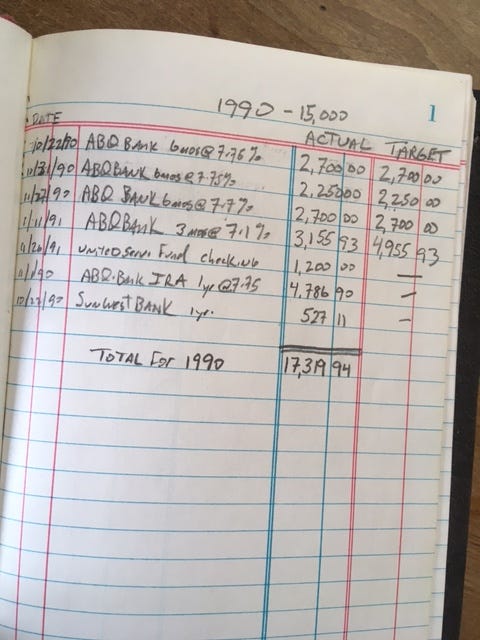 1990 - 15,000
1
DATE ACTUAL TARGET
10/22/90 ABQ BANK 6mos@ 7.75% 2,700 00 2,700 00
10/31/90 ABQ BANK 6mos@ 7.75% 2,250 00 2,250 00
11/27/90 ABQ BANK 6mos@ 7.7% 2,700 00 2,700 00
1/11/91 ABQ BANK 3mos@ 7.1% 3,155 93 4,955 93
United Serv. Fund checking 1,200 00 —
ABQ-BANK IRA 1yr @7.75 4,786 90 —
SUNWEST BANK 1yr. 527 11 —
TOTAL FOR 1990 17,319 94